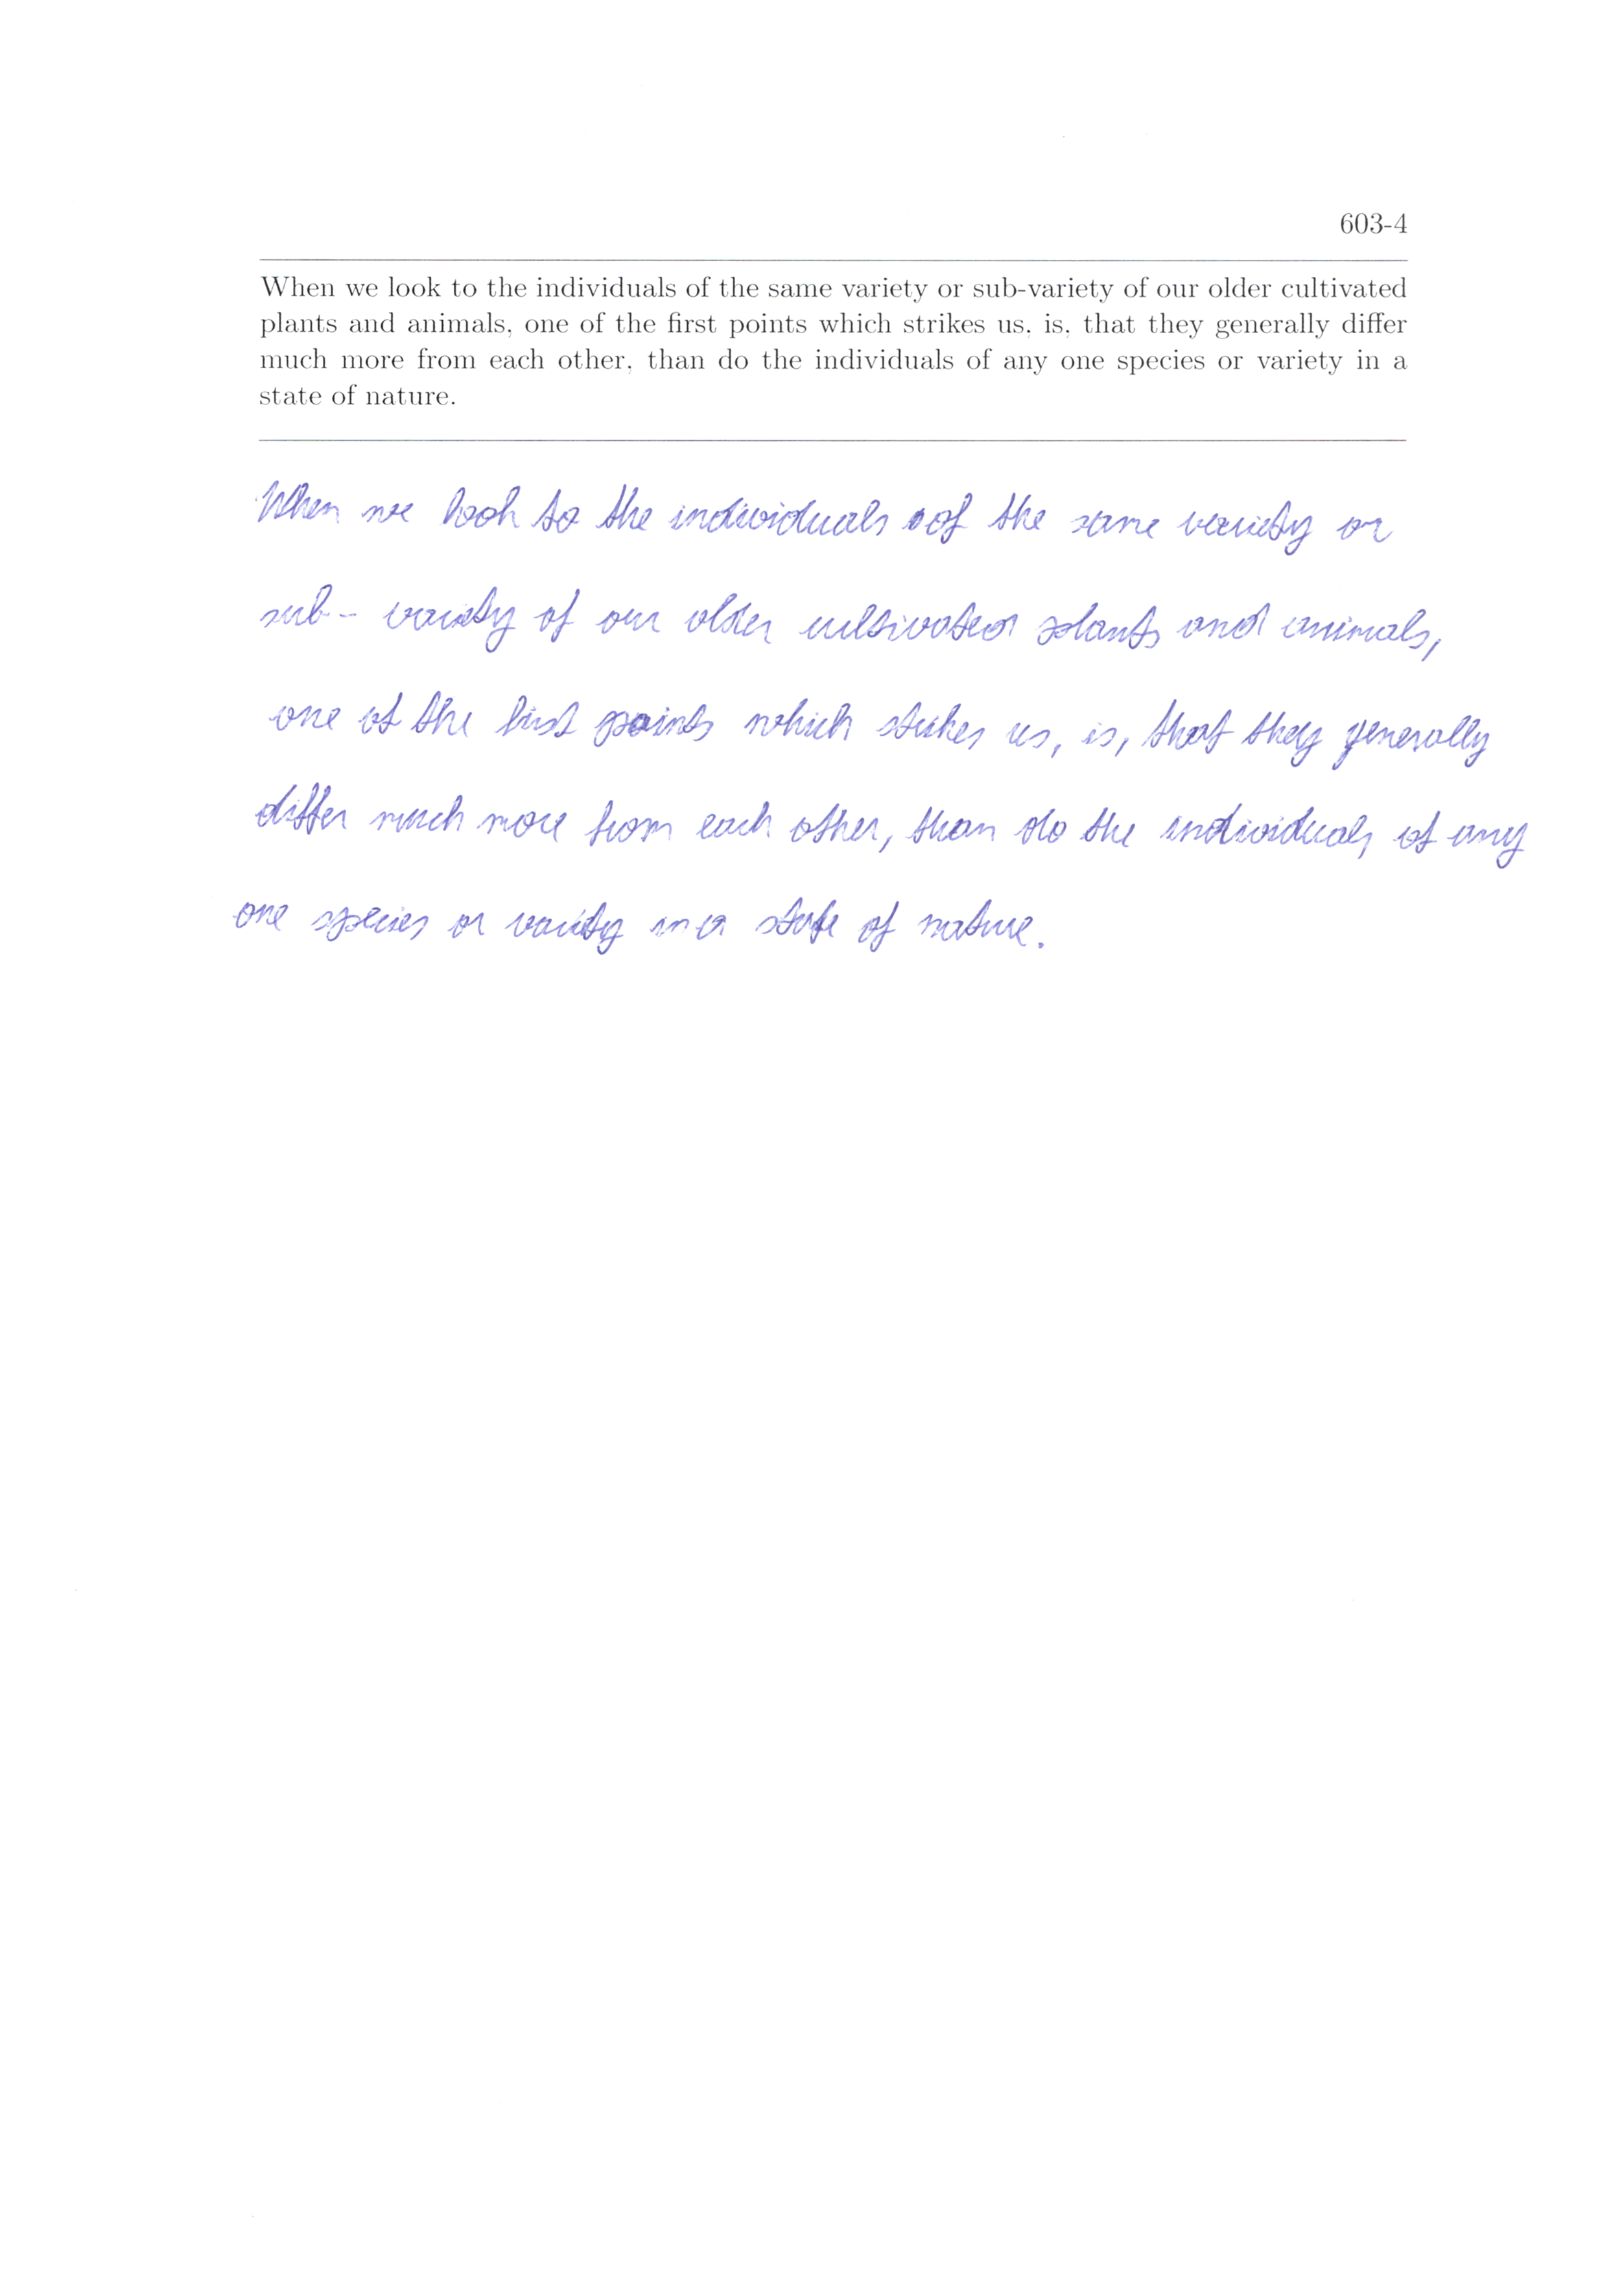 603-4
When we look to the individuals of the same variety or sub-variety of our older cultivated
plants and animals, one of the first points which strikes us, is, that they generally differ
much more from each other, than do the individuals of any one species or variety in a
state of nature.
When we look to the individuals of the same variety or
sub- variety of our older cultivated plants and animals,
one of the first points which strikes us, is, that they generally
differ much more from each other, than do the individuals of any
one species or variety in a state of nature.